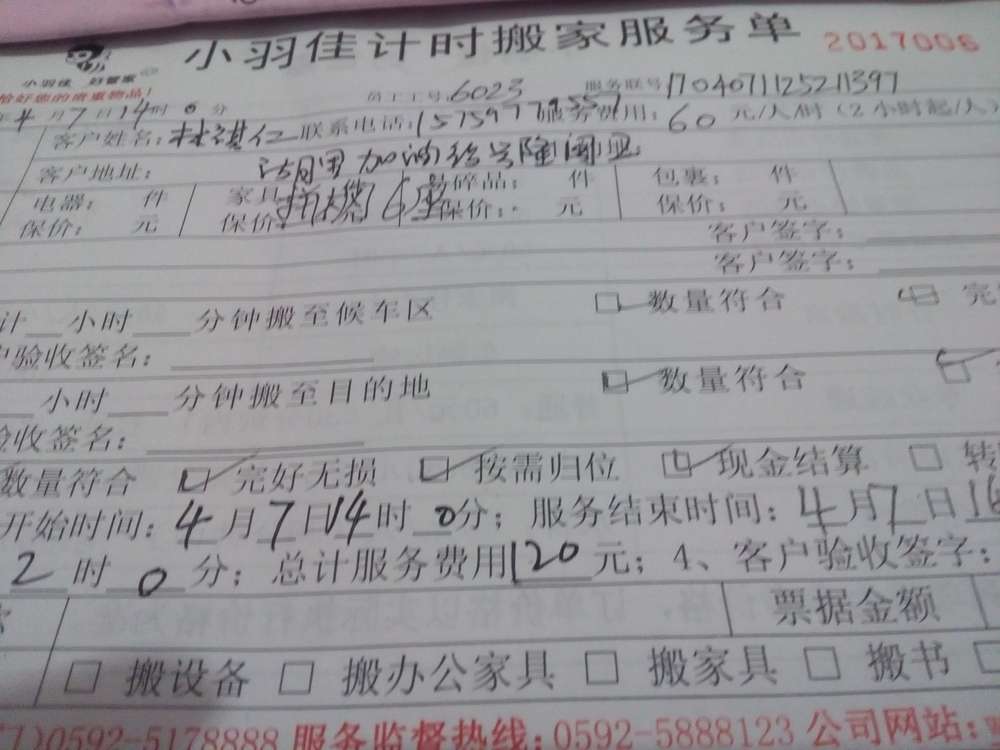 小羽佳计时搬家服务单 2017006
小羽佳 好管家
恰好您的贵重物品!
员工工号:6023 服务联号170407112521397
年4月7日14时0分
客户姓名:林淇仁 联系电话: 服务费用:60元/人/时(2小时起/人)
客户地址: 加油站
电器: 件 家具 碎品: 件 包裹: 件
保价: 元 保价 保价: 元 保价: 元
客户签字:
客户签字:
计 小时 分钟搬至候车区 数量符合 完
户验收签名:
小时 分钟搬至目的地 数量符合
验收签名:
数量符合 完好无损 按需归位 现金结算 转
开始时间:4月7日14时0分;服务结束时间:4月7日16
2时0分;总计服务费用120元;4、客户验收签字:
票据金额
搬设备 搬办公家具 搬家具 搬书
门)0592-5178888 服务监督热线:0592-5888123 公司网站: